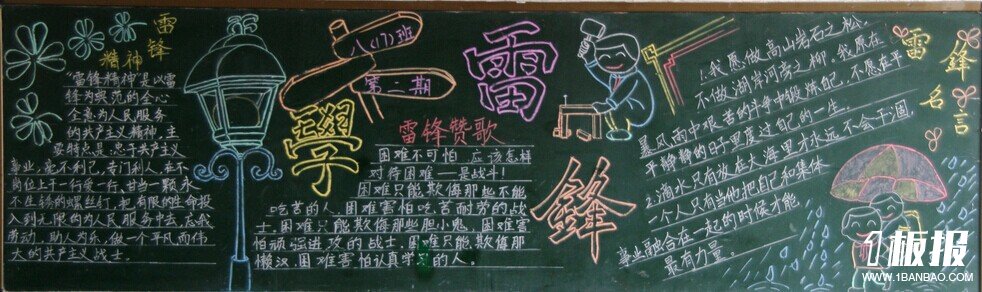 雷锋
精神
“雷锋精神”是以雷
锋为典范的全心
全意为人民服务
的共产主义精神，主
要特点是：忠于共产主义
事业，毫不利己，专门利人，在不
岗位上干一行爱一行，甘当一颗永
不生锈的螺丝钉，把有限的生命投
入到无限的为人民服务中去，忘我
劳动，助人为乐，做一个平凡而伟
大的共产主义战士。
八(17)班
第二期
學
雷
鋒
雷锋赞歌
困难不可怕 应该怎样
对待困难—是战斗！
困难只能欺侮那些不能
吃苦的人，困难害怕吃苦耐劳的战
士，困难只能欺侮那些胆小鬼，困难害
怕顽强进攻的战士，困难只能欺侮那
懒汉，困难害怕认真学习的人。
雷
鋒
名言
1.我愿做高山岩石之松，
不做湖岸河旁之柳。我愿在
暴风雨中艰苦的斗争中锻炼自己，不愿在平
平静静的日子里度过自己的一生。
2.滴水只有放在大海里才永远不会干涸，
一个人只有当他把自己和集体
事业融合在一起的时候才能
最有力量。
1板报
WWW.1BANBAO.COM